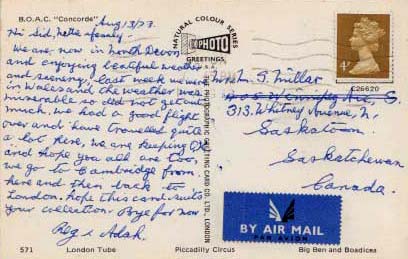 B.O.A.C. "Concorde" Aug/13/73.
Hi Sid, Nella & family:
We are now in North Devon
and enjoying beatiful weather
and scenery, last week we were
in Wales and the weather was
miserable so did not get out
much. we had a good flight
over and have travelled quite
a lot here, we are keeping OK
and hope you all are too,
we go to Cambridge from
here and then back to
London. Hope this card suits
your collection. Bye for now
Reg & Adah.
571 London Tube Piccadilly Circus Big Ben and Boadicea
NATURAL COLOUR SERIES
PHOTO
GREETINGS
THE PHOTOGRAPHIC GREETING CARD CO. LTD., LONDON
4P
C26620
Mr L. S. Millar
Winnipeg Ave, S.
313. Whitney Avenue, N.
Saskatoon
Saskatchewan
Canada.
BY AIR MAIL
PAR AVION